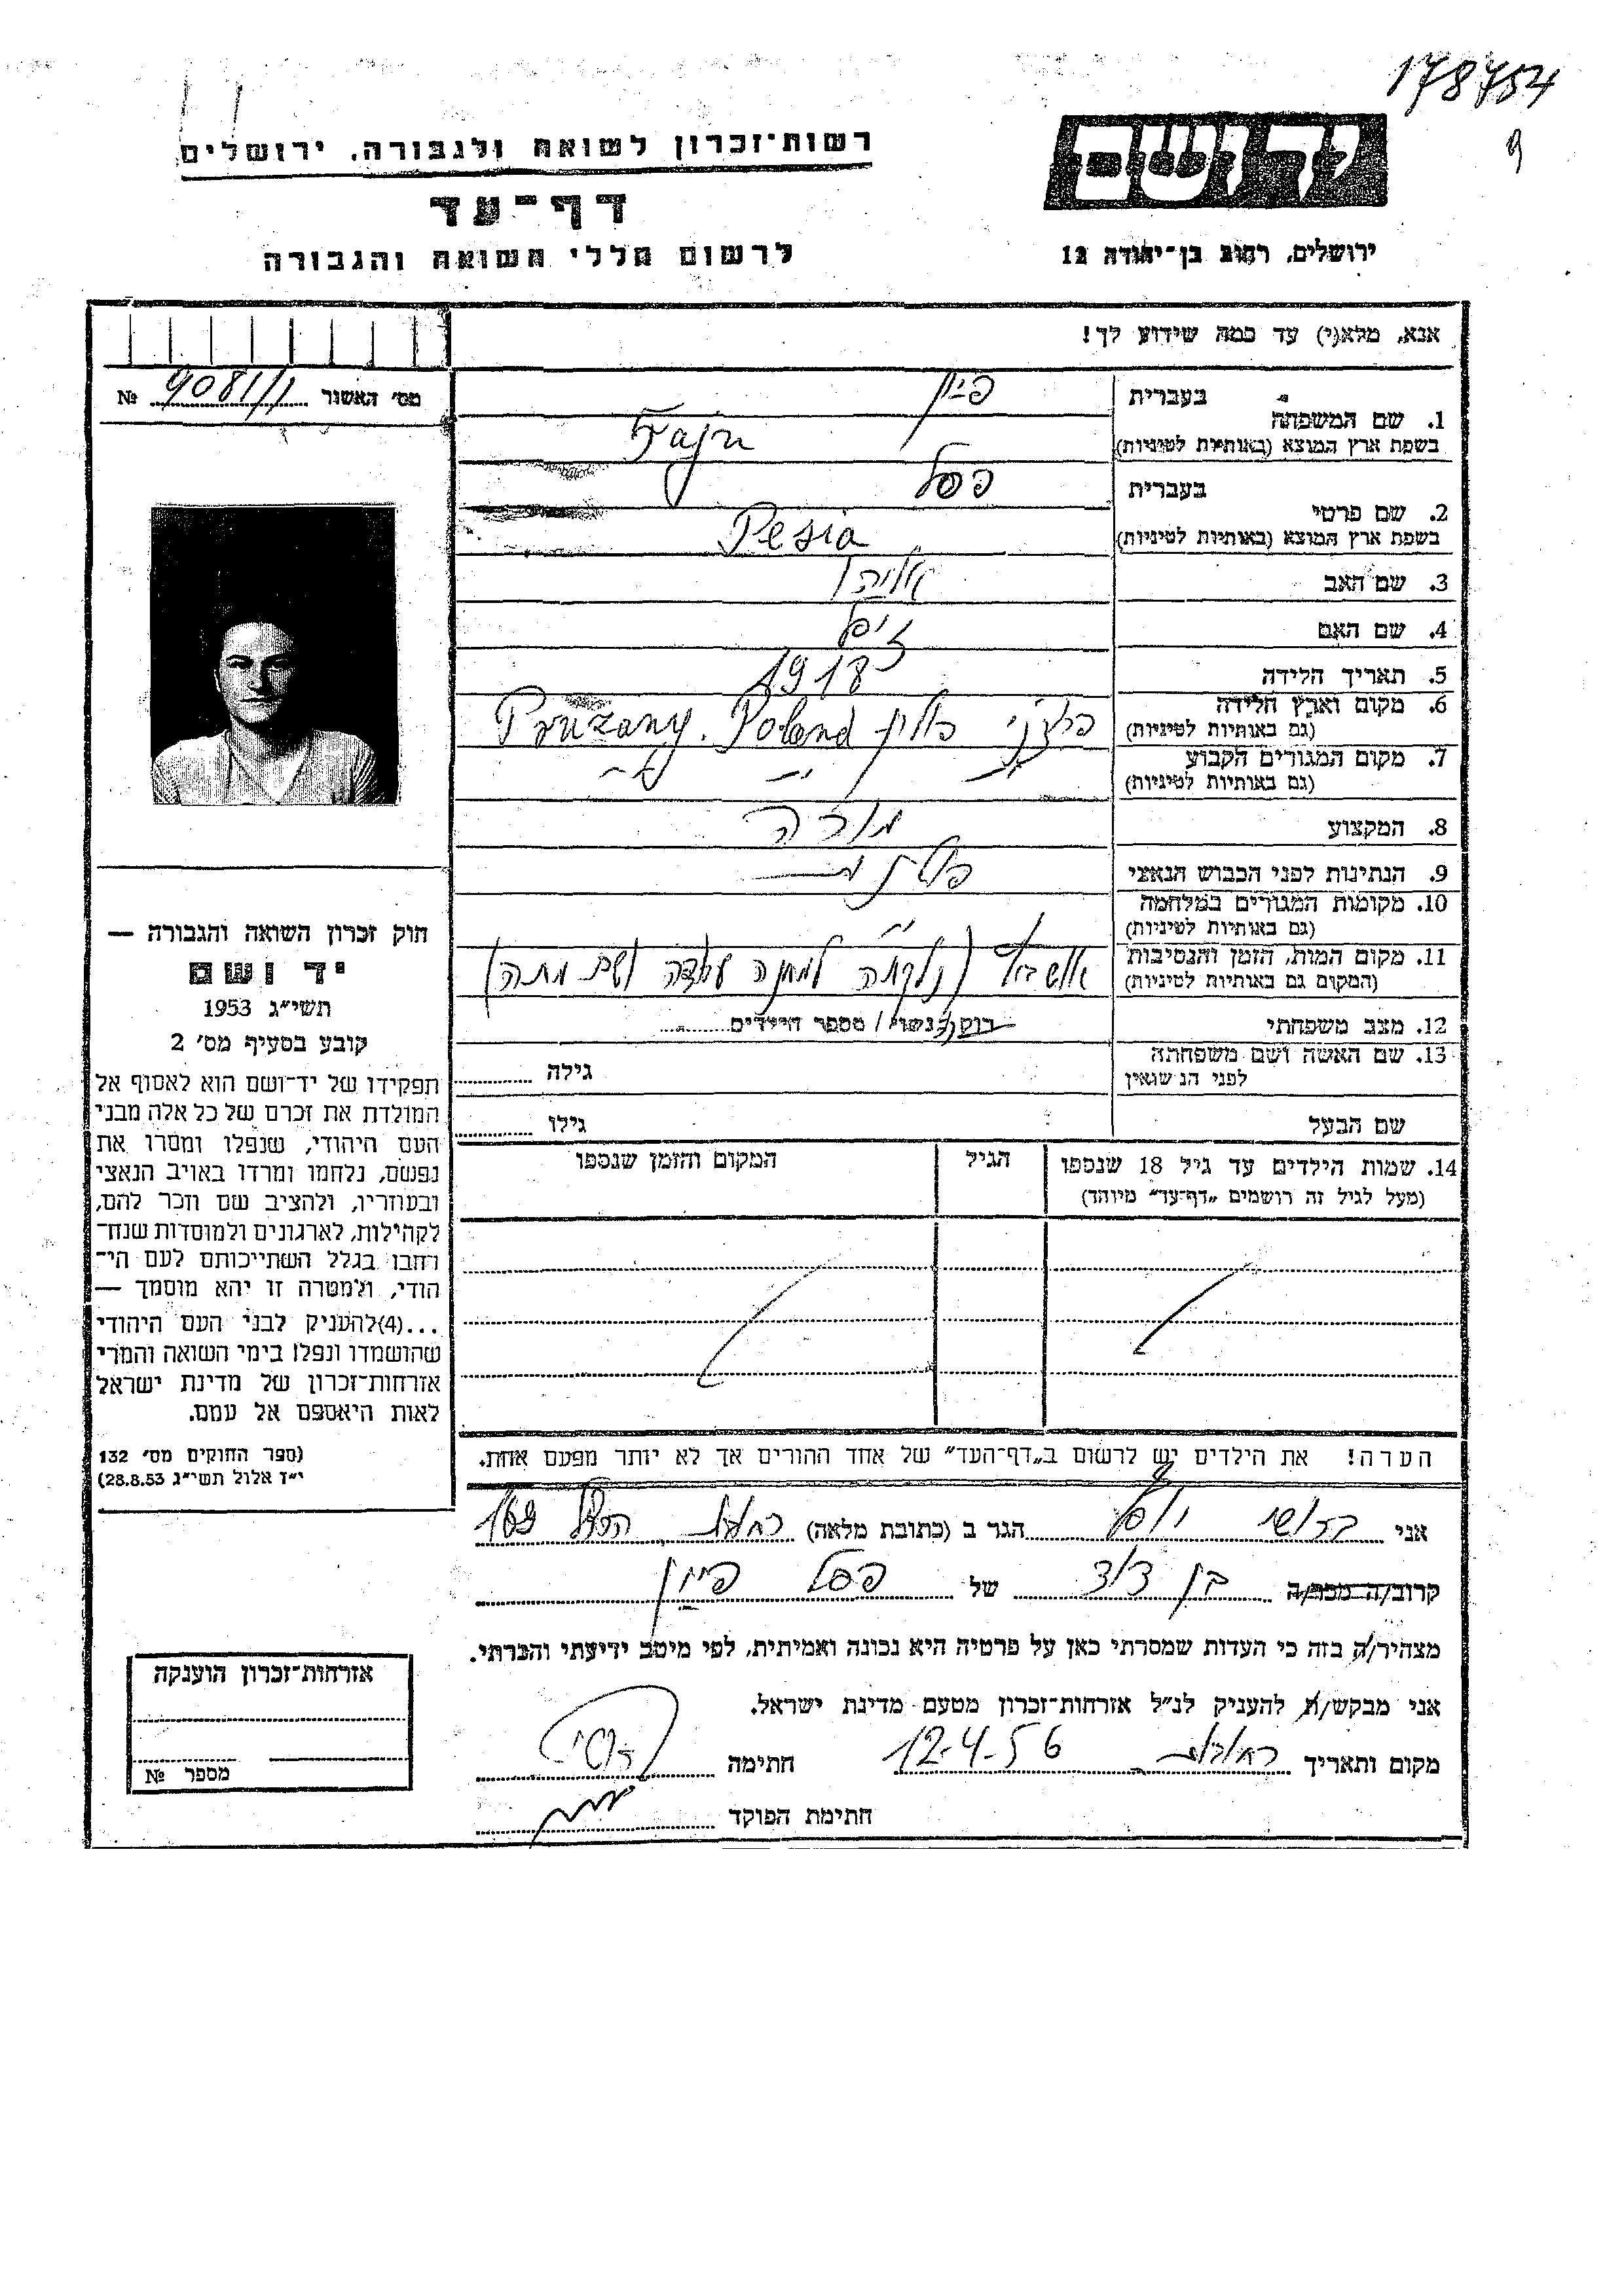 178754
רשות־זכרון לשואה ולגבורה, ירושלים
יד ושם
דף־עד
לרשום חללי השואה והגבורה
ירושלים, רחוב בן־יהודה 12
אנא, מלא(י) עד כמה שידוע לך!
מס' האשור 9081/1 №
1. שם המשפחה בעברית פיין
בשפת ארץ המוצא (באותיות לטיניות) Fajn
2. שם פרטי בעברית פסל
בשפת ארץ המוצא (באותיות לטיניות) Pesia
3. שם האב אליהו
4. שם האם
5. תאריך הלידה 1918
6. מקום וארץ הלידה
(גם באותיות לטיניות) פרוז'ני פולין Pruzany. Poland
7. מקום המגורים הקבוע
(גם באותיות לטיניות)
8. המקצוע מורה
9. הנתינות לפני הכבוש הנאצי פולנית
10. מקומות המגורים במלחמה
(גם באותיות לטיניות)
11. מקום המות, הזמן והנסיבות
(המקום גם באותיות לטיניות) (נלקחה למחנה עבודה ושם מתה)
12. מצב משפחתי רוק/נשוי / מספר הילדים
13. שם האשה ושם משפחתה
לפני הנשואין גילה
שם הבעל גילו
14. שמות הילדים עד גיל 18 שנספו הגיל המקום והזמן שנספו
(מעל לגיל זה רושמים „דף־עד” מיוחד)
הערה! את הילדים יש לרשום ב„דף־העד” של אחד ההורים אך לא יותר מפעם אחת.
חוק זכרון השואה והגבורה —
יד ושם
תשי"ג 1953
קובע בסעיף מס' 2
תפקידו של יד־ושם הוא לאסוף אל
המולדת את זכרם של כל אלה מבני
העם היהודי, שנפלו ומסרו את
נפשם, נלחמו ומרדו באויב הנאצי
ובעוזריו, ולהציב שם וזכר להם,
לקהילות, לארגונים ולמוסדות שנח־
רבו בגלל השתייכותם לעם הי־
הודי, ולמטרה זו יהא מוסמך —
...(4)להעניק לבני העם היהודי
שהושמדו ונפלו בימי השואה והמרי
אזרחות־זכרון של מדינת ישראל
לאות היאספם אל עמם.
(ספר החוקים מס' 132
י"ז אלול תשי"ג 28.8.53)
אני יוסף הגר ב (כתובת מלאה) רחובות 169
קרוב/ה מכר/ה בן דוד של פסל פיין
מצהיר/ה בזה כי העדות שמסרתי כאן על פרטיה היא נכונה ואמיתית, לפי מיטב ידיעתי והכרתי.
אני מבקש/ת להעניק לנ"ל אזרחות־זכרון מטעם מדינת ישראל.
מקום ותאריך רחובות 12-4-56 חתימה
חתימת הפוקד
אזרחות־זכרון הוענקה
מספר №